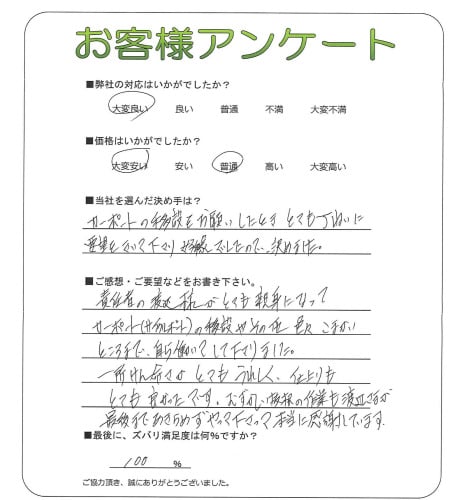 お客様アンケート
■弊社の対応はいかがでしたか？
大変良い 良い 普通 不満 大変不満
■価格はいかがでしたか？
大変安い 安い 普通 高い 大変高い
■当社を選んだ決め手は？
カーポートの移設をお願いしたとき とても丁ねいに
要望をきいて下さり 好感でしたので、決めました。
■ご感想・ご要望などをお書き下さい。
責任者の 様がとても親身になって
カーポート(サイクルポート)の移設やその他 色々 こまかい
ところまで、自ら働いて して下さりました。
一所けん命さが とても うれしく、仕上りも
とても 良かったです。むずかしい の作業も 渡辺さんが
最後まであきらめずやって下さって 本当に感謝しています。
■最後に、ズバリ満足度は何％ですか？
100 ％
ご協力頂き、誠にありがとうございました。